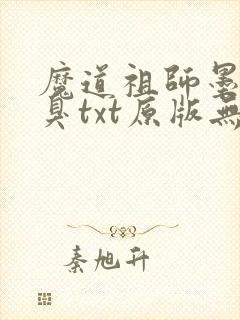 魔道祖師墨
臭txt原版無
秦旭升